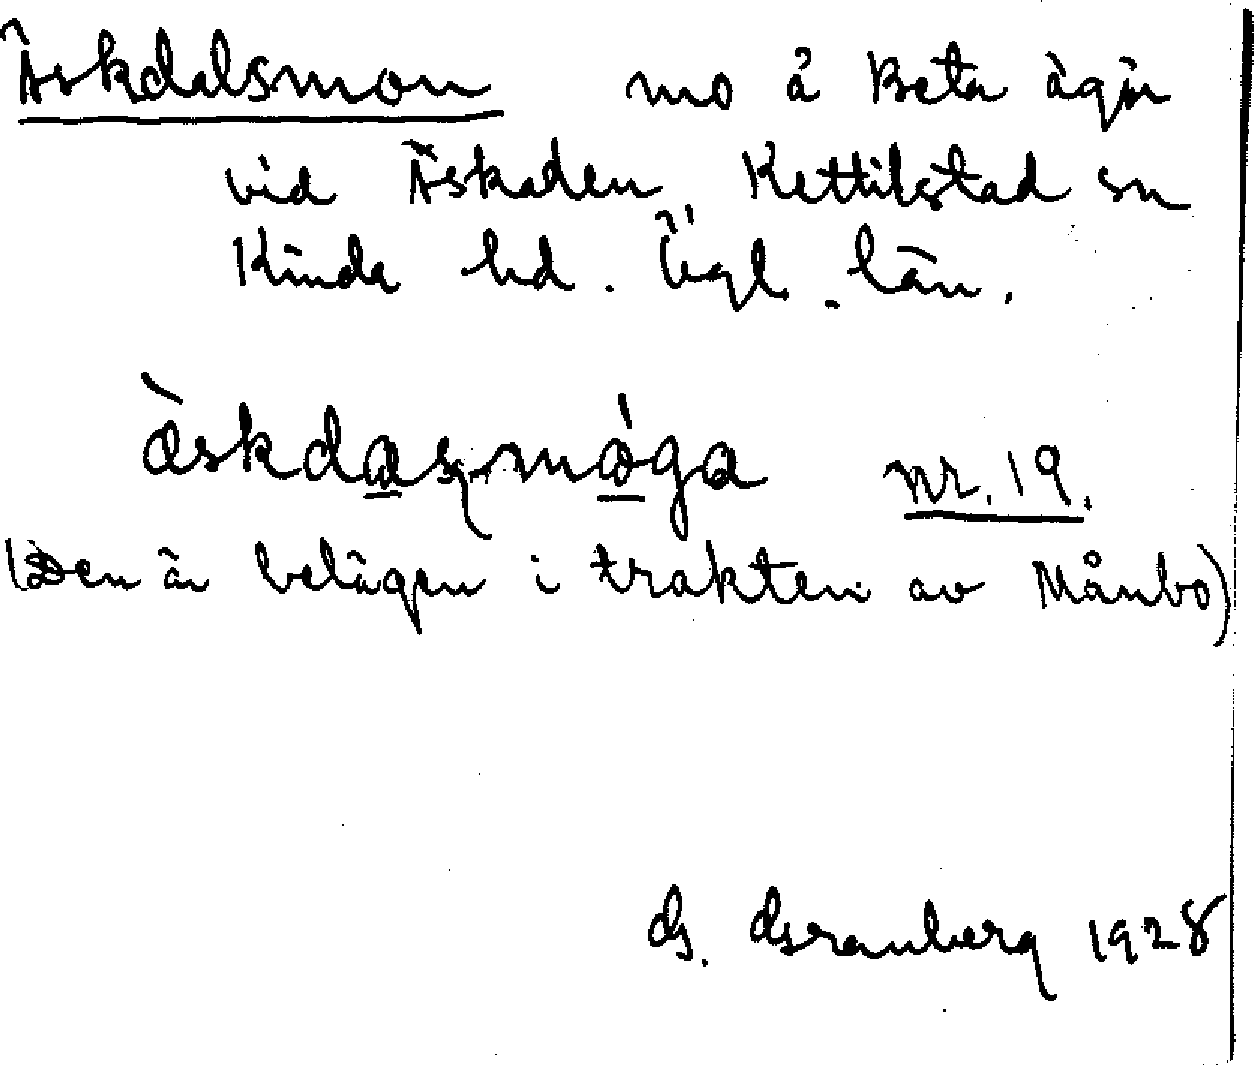 Äskdalsmon mo å Beta ägor
vid Äskaden, Kettilstad sn
Kinda hd. Ögl. län.
äskdasmóga nr. 19.
(Den är belägen i trakten av Månbo)
G. Granberg 1928